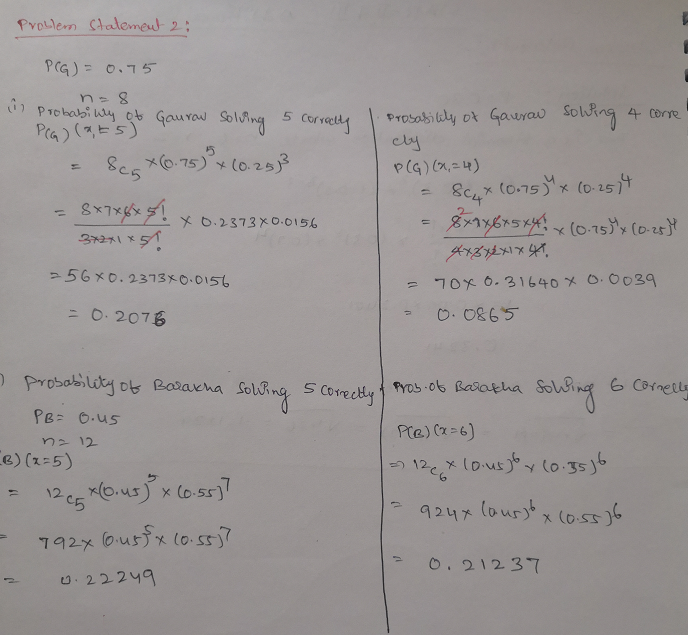 Problem Statement 2:
P(G) = 0.75
n = 8
(i) Probability of Gaurav Solving 5 correctly
P(G) (x₁ = 5)
= 8c₅ × (0.75)⁵ × (0.25)³
= 8×7×6×5! / 3×2×1×5! × 0.2373×0.0156
= 56 × 0.2373×0.0156
= 0.2076
Probability of Gaurav Solving 4 corre
ctly
P(G) (x₁ = 4)
= 8c₄ × (0.75)⁴ × (0.25)⁴
= 8×7×6×5×4! / 4×3×2×1×4! × (0.75)⁴ × (0.25)⁴
2
= 70 × 0.31640 × 0.0039
= 0.0865
) Probability of Barakha Solving 5 correctly
PB = 0.45
n = 12
(B) (x=5)
= 12c₅ × (0.45)⁵ × (0.55)⁷
= 792 × (0.45)⁵ × (0.55)⁷
= 0.22249
Prob. of Barakha Solving 6 correctly
P(B) (x=6)
=> 12c₆ × (0.45)⁶ × (0.35)⁶
= 924 × (0.45)⁶ × (0.55)⁶
= 0.21237